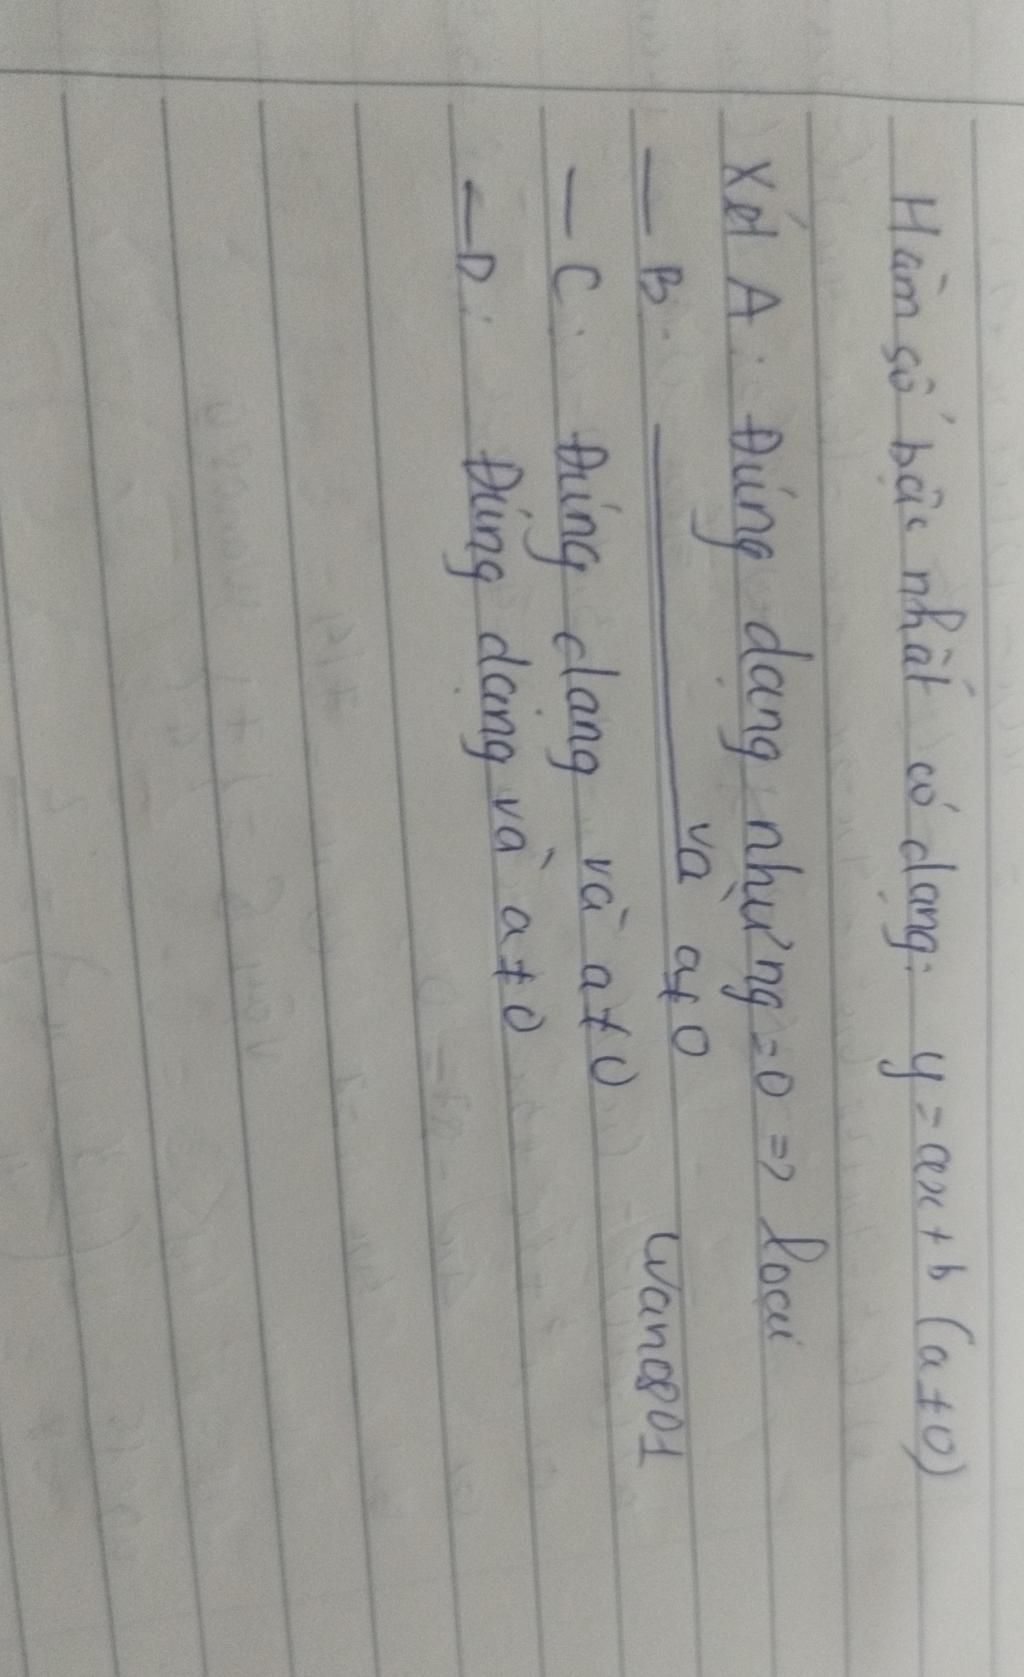 Hàm số bậc nhất có dạng: y = ax + b (a ≠ 0)
Xét A: Đúng dạng nhưng = 0 => loại
— B: ——— và a ≠ 0
— C: Đúng dạng và a ≠ 0
— D: Đúng dạng và a ≠ 0
wano801